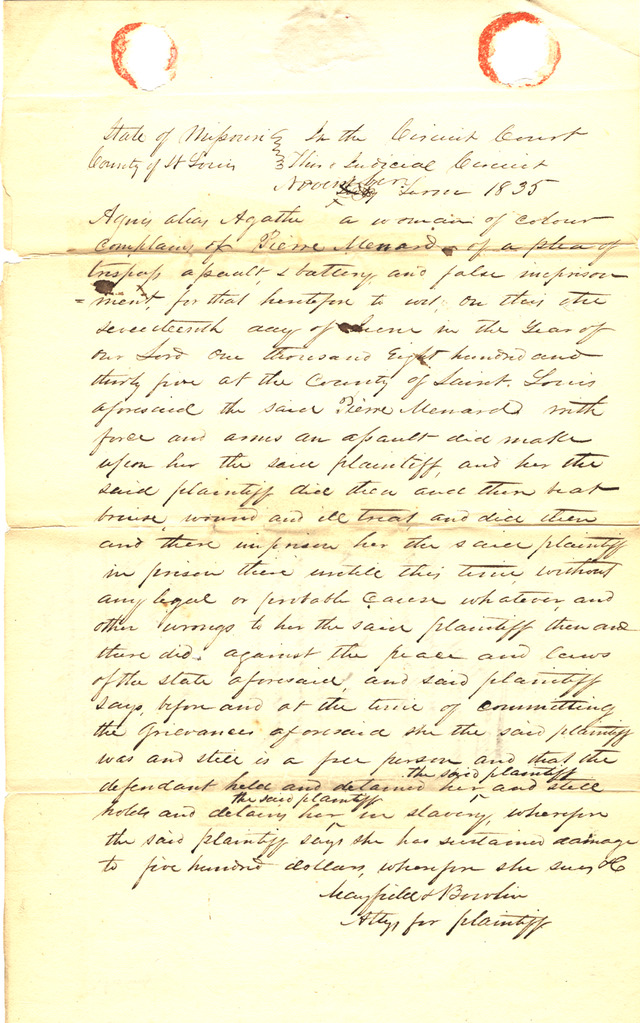 State of Missouri } In the Circuit Court
County of St Louis } Third Judicial Circuit
November Term 1835
Agnis alias Agathe a woman of colour
complains of Pierre Menard of a plea of
trespass, assault, & battery, and false imprison
=ment, for that heretofore to wit, on this the
seventeenth day of June in the Year of
our Lord One thousand Eight hundred and
thirty five at the County of Saint Louis
aforesaid the said Pierre Menard with
force and arms an assault did make
upon her the said plaintiff, and her the
said plaintiff did then and there beat
bruise, wound and ill treat and did then
and there imprison her the said plaintiff
in prison there untill this time, without
any legal or probable cause whatever, and
other wrongs to her the said plaintiff then and
there did against the peace and laws
of the state aforesaid, and said plaintiff
says, before and at the time of committing
the Grievances aforesaid she the said plaintiff
was and still is a free person and that the
the said plaintiff
defendant held and detained her, and still
the said plaintiff
holds and detains her in slavery, wherefore
the said plaintiff says she has sustained damage
to five hundred dollars, wherefore she sues &c
Mayfield & Bowlin
Attys for plaintiff